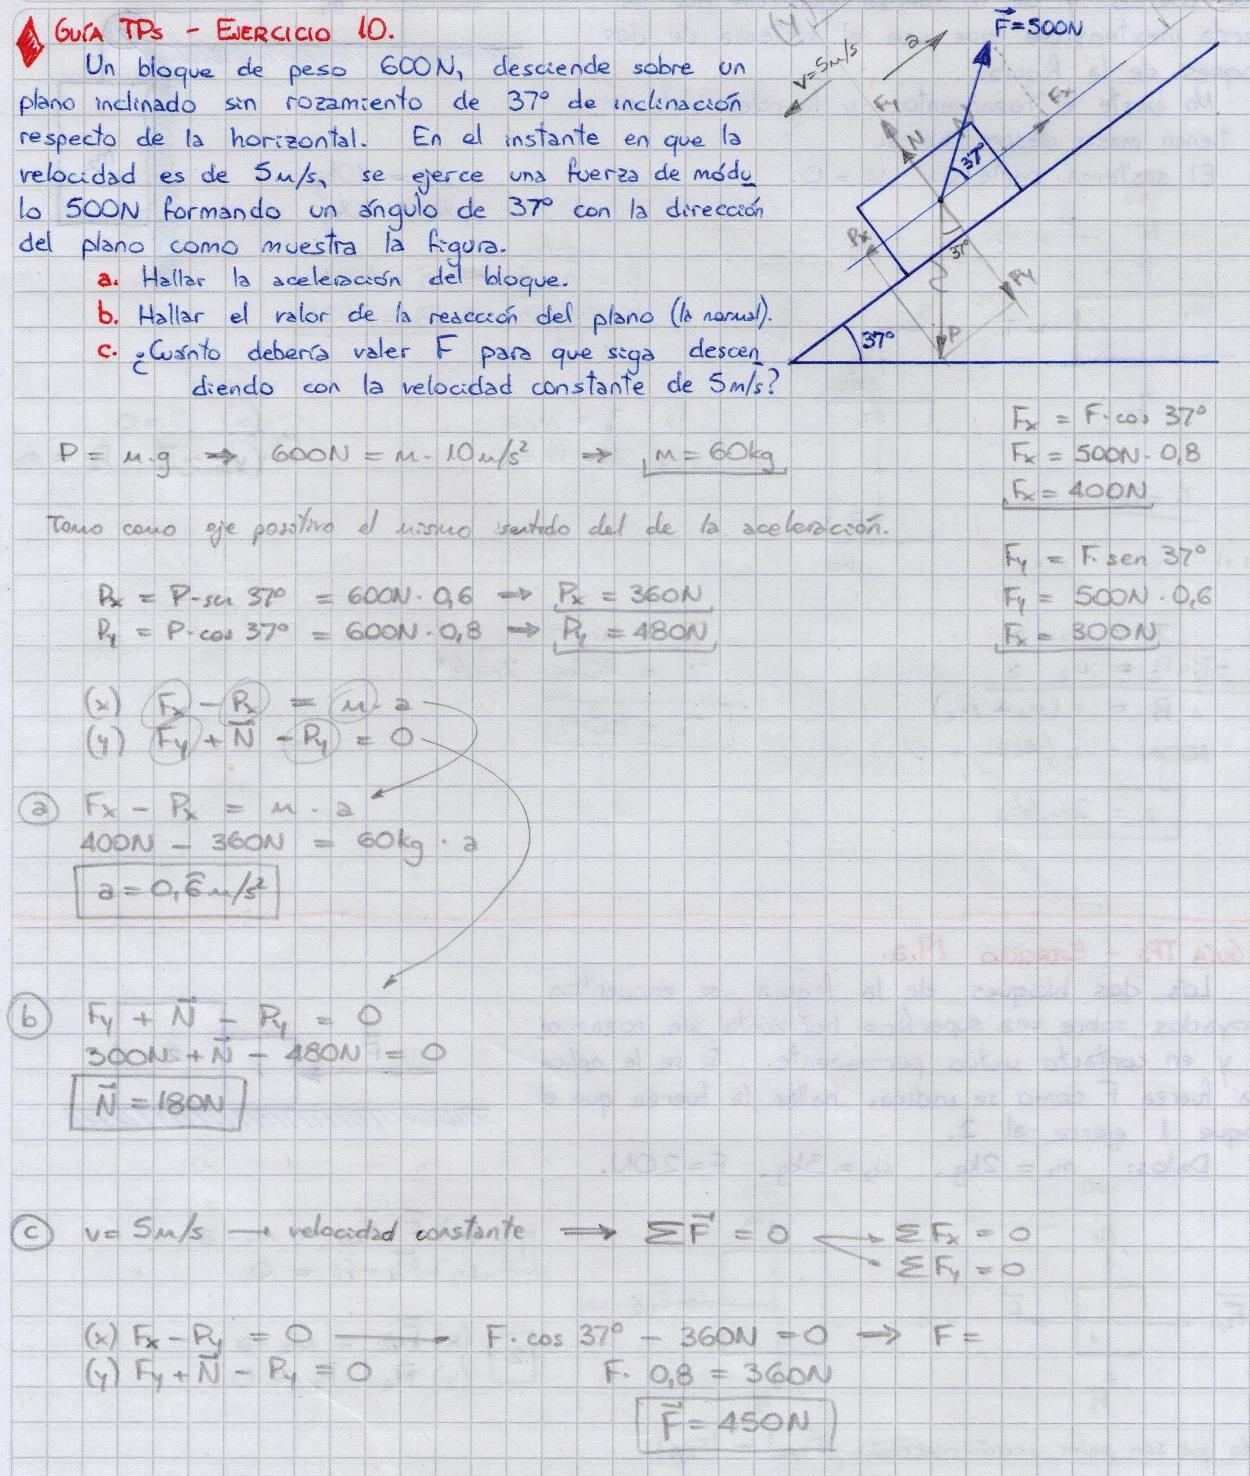 GUÍA TPs - EJERCICIO 10.
Un bloque de peso 600N, desciende sobre un
plano inclinado sin rozamiento de 37º de inclinación
respecto de la horizontal. En el instante en que la
velocidad es de 5m/s, se ejerce una fuerza de módu
lo 500N formando un ángulo de 37º con la dirección
del plano como muestra la figura.
a. Hallar la aceleración del bloque.
b. Hallar el valor de la reacción del plano (la normal).
c. ¿Cuánto debería valer F para que siga descen
diendo con la velocidad constante de 5m/s?
F⃗=500N
a
v=5m/s
Fy
Fx
N
37º
Px
37º
Py
P
37º
P = m.g ⇒ 600N = m. 10m/s² ⇒ m = 60kg
Fx = F.cos 37º
Fx = 500N. 0,8
Fx = 400N
Tomo como eje positivo el mismo sentido del de la aceleración.
Fy = F. sen 37º
Fy = 500N . 0,6
Fx = 300N
Px = P.sen 37º = 600N. 0,6 ⇒ Px = 360N
Py = P.cos 37º = 600N. 0,8 ⇒ Py = 480N
(x) Fx - Px = m. a
(y) Fy + N⃗ - Py = 0
a Fx - Px = m . a
400N - 360N = 60kg . a
a = 0,6̂ m/s²
b Fy + N⃗ - Py = 0
300N + N⃗ - 480N = 0
N⃗ = 180N
c v= 5m/s → velocidad constante ⇒ ΣF⃗ = 0
ΣFx = 0
ΣFy = 0
(x) Fx - Py = 0 → F. cos 37º - 360N = 0 → F =
(y) Fy + N⃗ - Py = 0
F. 0,8 = 360N
F⃗ = 450N